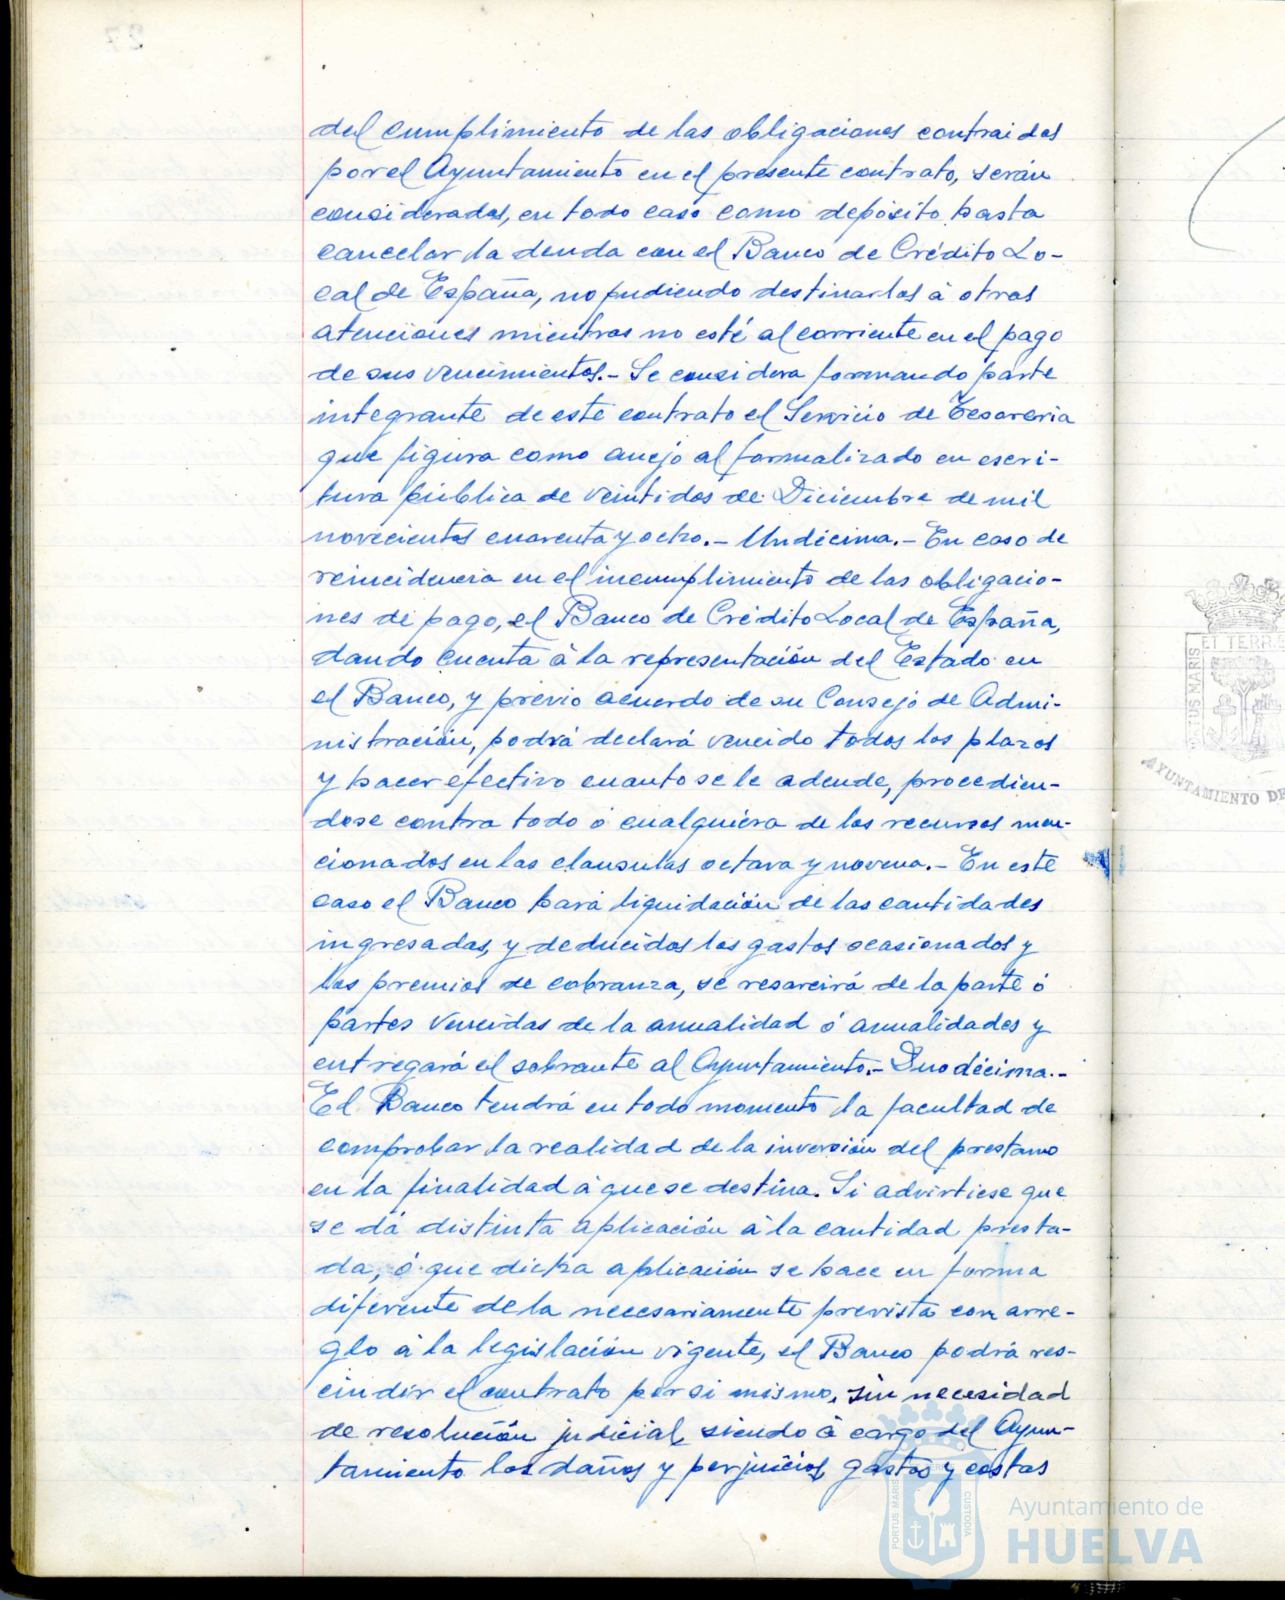 del cumplimiento de las obligaciones contraidas
por el Ayuntamiento en el presente contrato, serán
consideradas, en todo caso como depósito hasta
cancelar la deuda con el Banco de Crédito Lo-
cal de España, no pudiendo destinarlas á otras
atenciones mientras no esté al corriente en el pago
de sus vencimientos.- Se considera formando parte
integrante de este contrato el Servicio de Tesoreria
que figura como anejo al formalizado en escri-
tura pública de veintidos de Diciembre de mil
novecientos cuarenta y ocho.- Undécima.- En caso de
reincidencia en el incumplimiento de las obligacio-
nes de pago, el Banco de Crédito Local de España,
dando cuenta á la representación del Estado en
el Banco, y previo acuerdo de su Consejo de Admi-
nistración, podrá declará vencido todos los plazos
y hacer efectivo cuanto se le adeude, procedien-
dose contra todo ó cualquiera de los recursos men-
cionados en las clausulas octava y novena.- En este
caso el Banco hará liquidación de las cantidades
ingresadas, y deducidos los gastos ocasionados y
los premios de cobranza, se resarcirá de la parte ó
partes vencidas de la anualidad ó anualidades y
entregará el sobrante al Ayuntamiento.- Duodécima.-
El Banco tendrá en todo momento la facultad de
comprobar la realidad de la inversión del prestamo
en la finalidad á que se destina. Si advirtiese que
se dá distinta aplicación á la cantidad presta-
da, ó que dicha aplicación se hace en forma
diferente de la necesariamente prevista con arre-
glo á la legislación vigente, el Banco podrá res-
cindir el contrato por si mismo, sin necesidad
de resolución judicial, siendo á cargo del Ayun-
tamiento los daños y perjuicios, gastos y costas
ET TERRAE
PORTUS MARIS
AYUNTAMIENTO DE
PORTUS MARIS
CUSTODIA
Ayuntamiento de
HUELVA
27